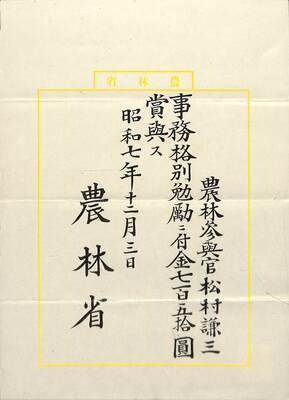 農林省
農林參與官松村謙三
事務格別勉勵ニ付金七百五拾圓
賞與ス
昭和七年十二月三日
農林省